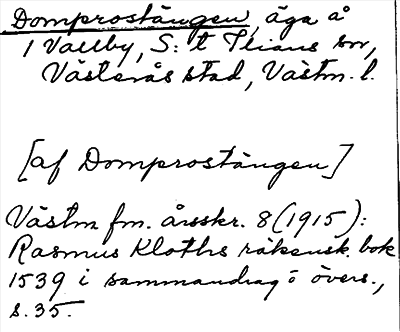 Domprostängen, äga å
1 Vallby, S:t Ilians sn,
Västerås stad, Västm. l.
[af Domprostängen]
Västm fm. årsskr. 8 (1915):
Rasmus Kloths räkensk. bok
1539 i sammandrag o övers.,
s. 35.